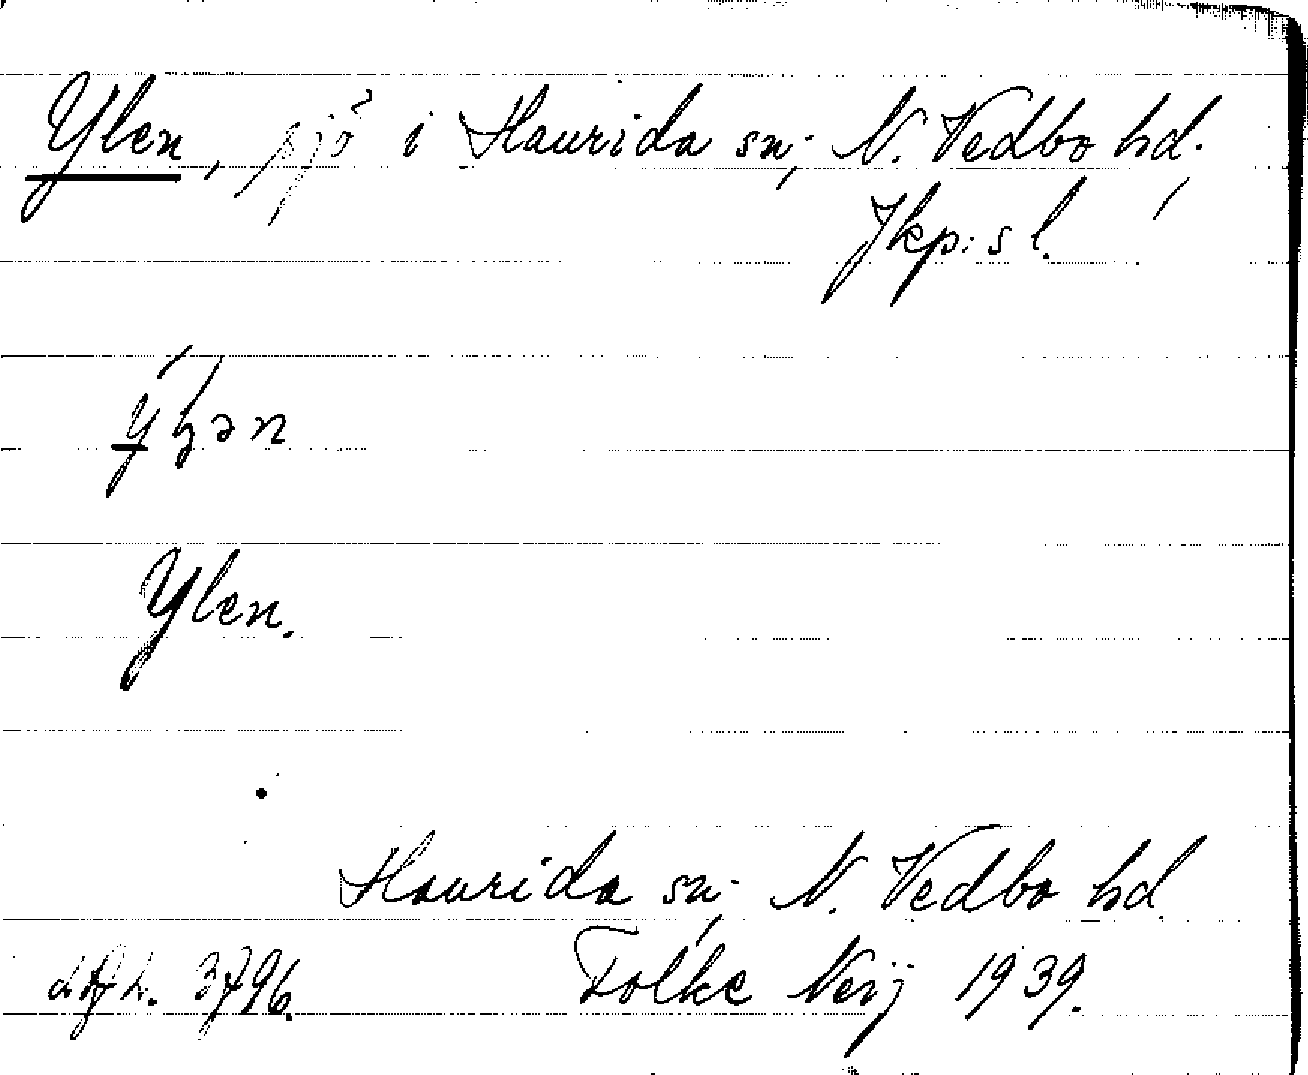 Ylen, sjö i Haurida sn; N. Vedbo hd.
Jkp:s l.
Ylen.
Haurida sn; N. Vedbo hd
3796.
Folke Neij 1939.